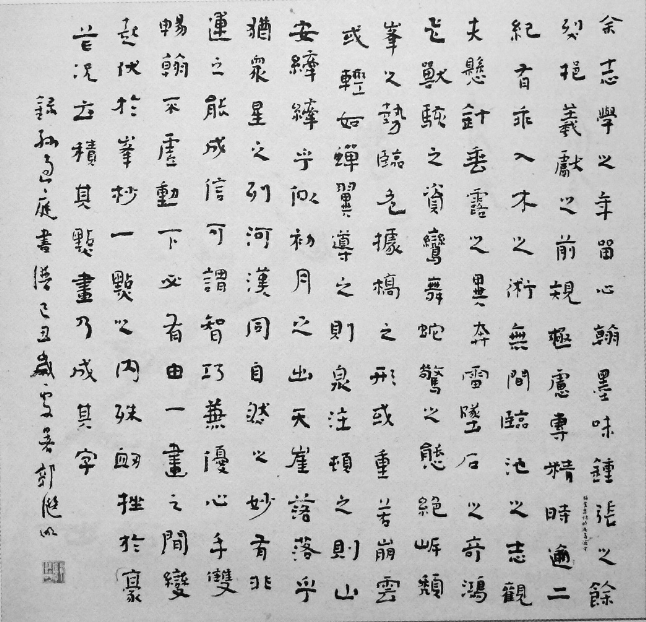 余志學之年留心翰墨味鍾張之餘
烈挹羲獻之前規極慮專精時逾二
紀有乖入木之術無間臨池之志觀
夫懸針垂露之異奔雷墜石之奇鴻
飛獸駭之資鸞舞蛇驚之態絕岸頹
峯之勢臨危據槁之形或重若崩雲
或輕如蟬翼導之則泉注頓之則山
安纖纖乎似初月之出天崖落落乎
猶眾星之列河漢同自然之妙有非
運之能成信可謂智巧兼優心手雙
暢翰不虛動下必有由一畫之間變
起伏於峯杪一點之內殊衄挫於豪
芒況云積其點畫乃成其字
錄孫過庭書譜己丑歲夏暑